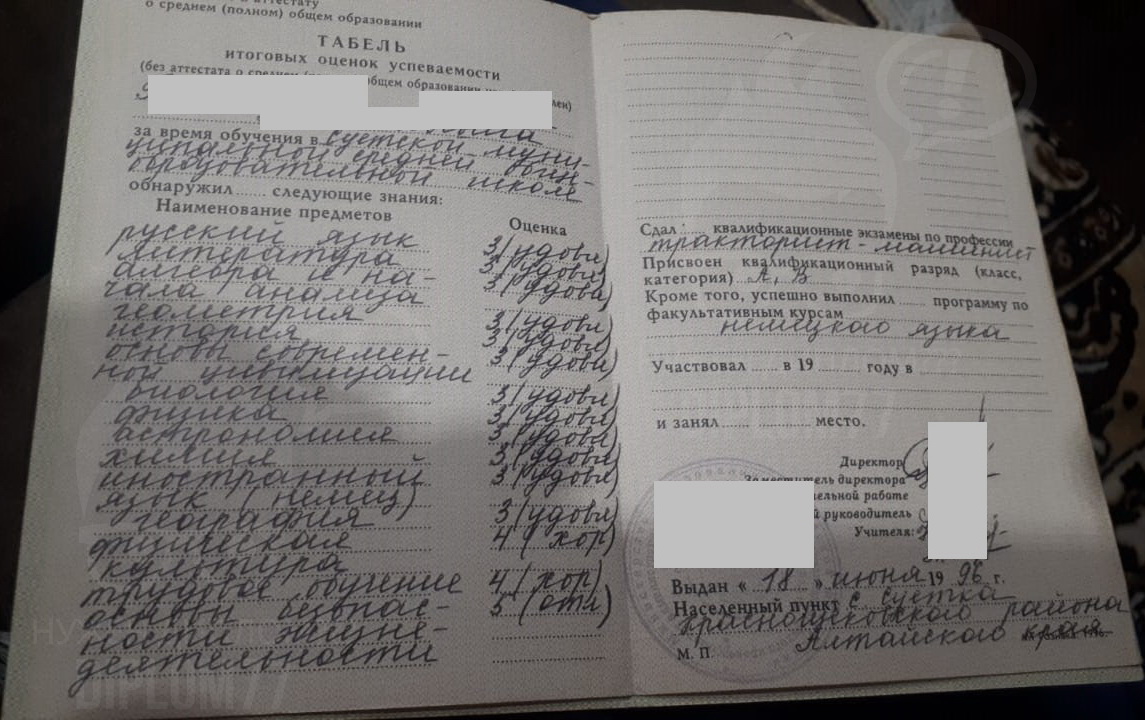 о среднем (полном) общем образовании
ТАБЕЛЬ
итоговых оценок успеваемости
(без аттестата о среднем общем образовании
за время обучения в Суетской муни-
ципальной средней общеобразовательной школе
обнаружил ..... следующие знания:
Наименование предметов Оценка
русский язык 3 (удовл)
литература 3 (удовл)
алгебра и на- 3 (удовл)
чала анализа
геометрия 3 (удовл)
история 3 (удовл)
основы современ- 3 (удовл)
ной цивилизации
биология 3 (удовл)
физика 3 (удовл)
астрономия 3 (удовл)
химия 3 (удовл)
иностранный 3 (удовл)
язык (немец)
география 3 (удовл)
физическая 4 (хор)
культура
трудовое обучение 4 (хор)
основы безопас- 5 (отл)
ности жизне-
деятельности
Сдал ..... квалификационные экзамены по профессии
тракторист-машинист
Присвоен квалификационный разряд (класс,
категория) А, В
Кроме того, успешно выполнил ..... программу по
факультативным курсам
немецкого языка
Участвовал ..... в 19 ..... году в
и занял ..... ..... место.
Директор
Заместитель директора
работе
руководитель
Учителя:
Выдан « 18 » июня 19 96 г.
Населенный пункт с Суетка
Краснощековского района
Алтайского края
М. П.
DIPLOM77